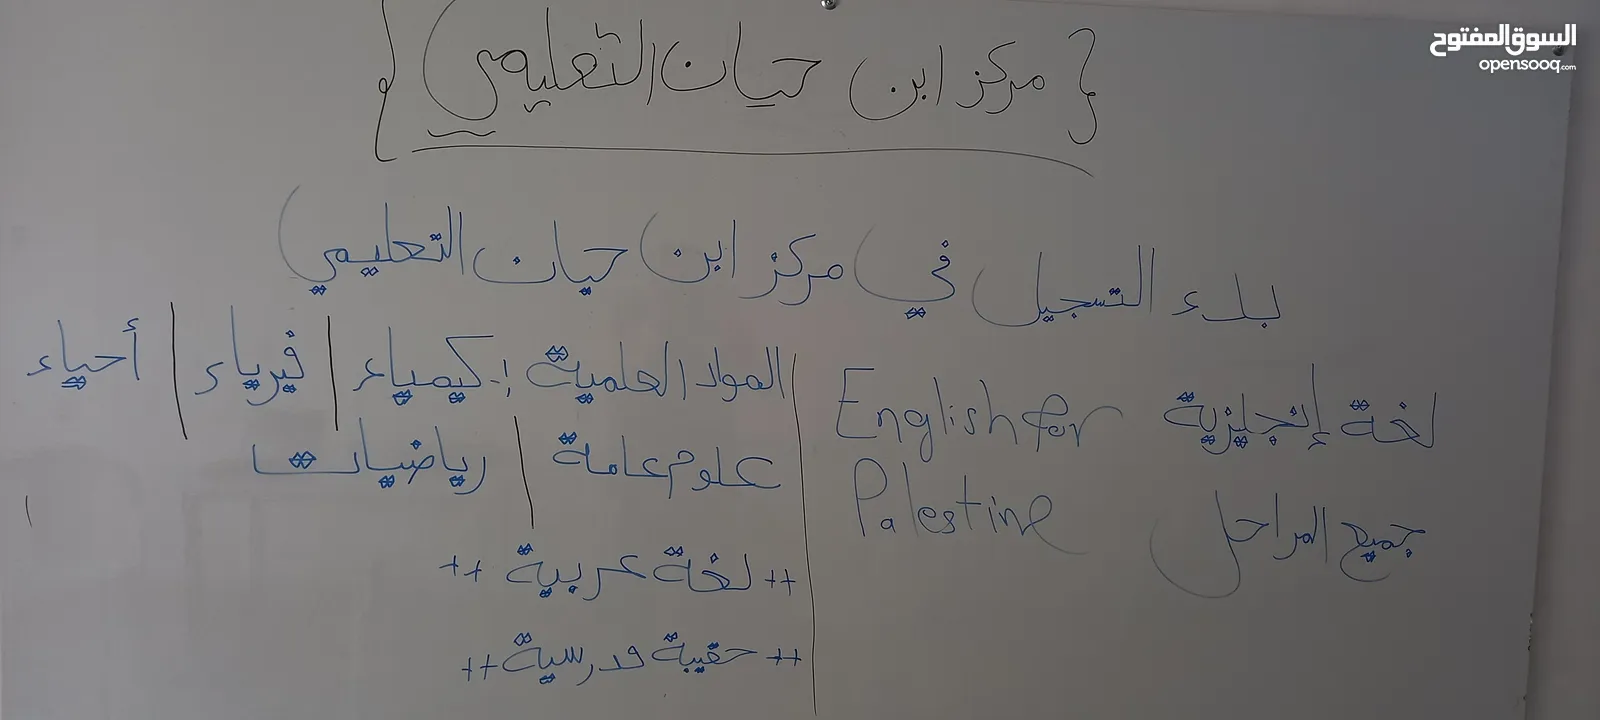 السوق المفتوح
opensooq.com
{ مركز ابن حيان التعليمي }
بدء التسجيل في مركز ابن حيان التعليمي
لغة إنجليزية English for
جميع المراحل Palestine
المواد العلمية :- كيمياء | فيزياء | أحياء
علوم عامة | رياضيات
++ لغة عربية ++
++ حقيبة مدرسية ++